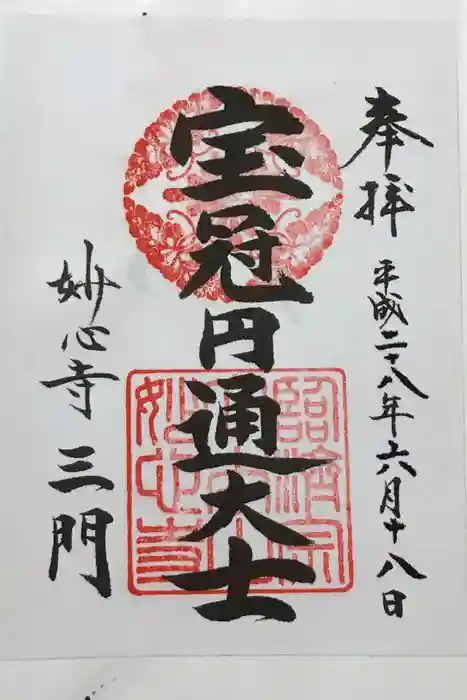 奉拝
平成二十八年六月十八日
宝冠円通大士
妙心寺 三門
臨済宗
妙心寺